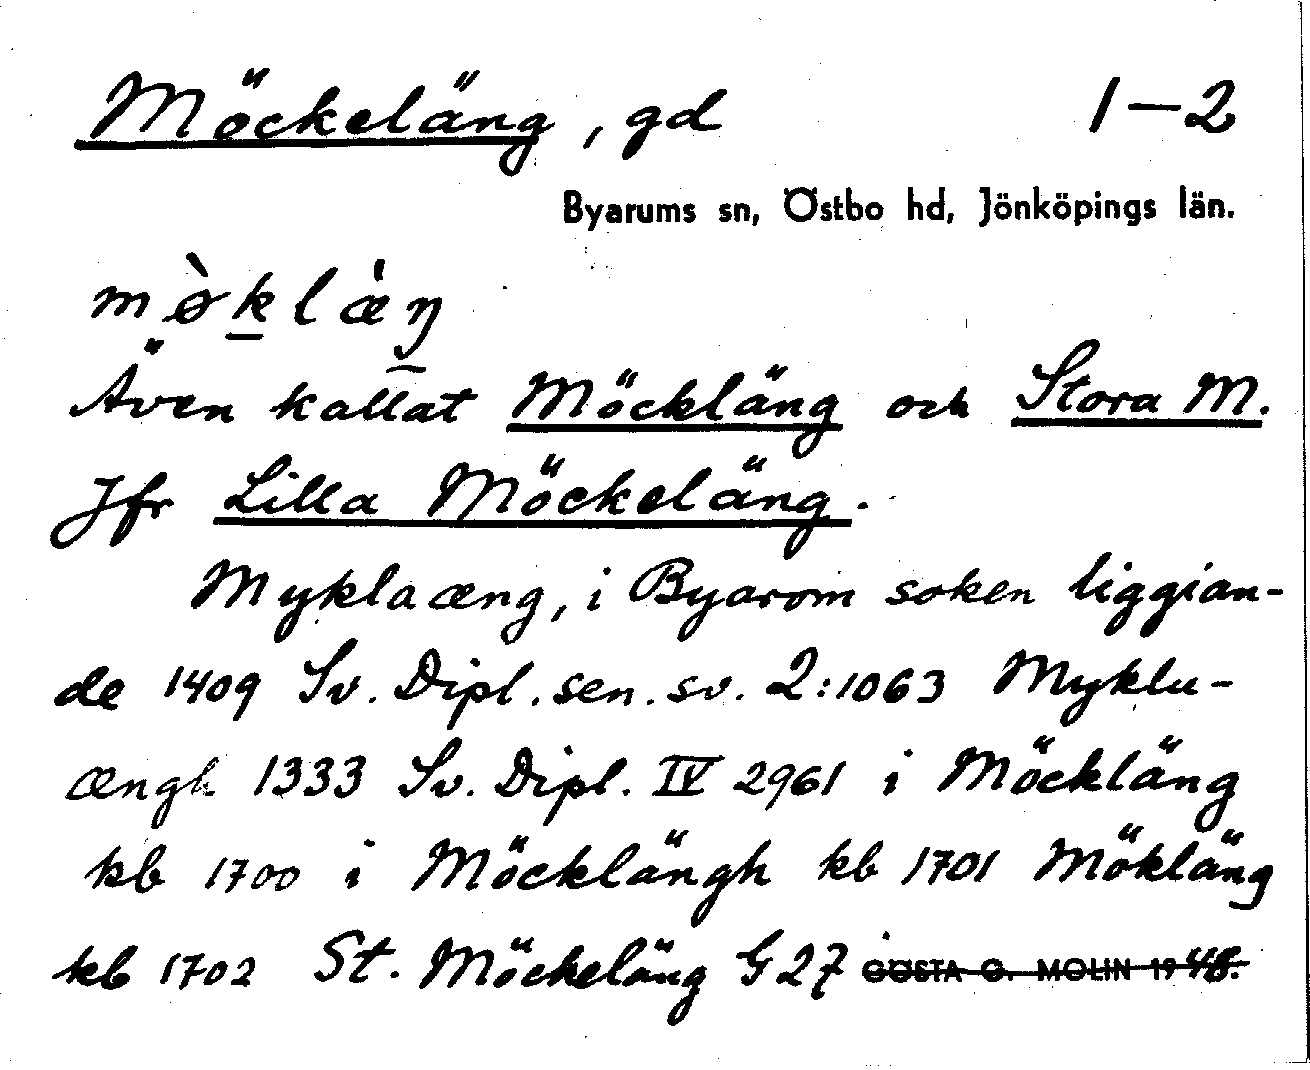 Möckeläng, gd 1–2
Byarums sn, Östbo hd, Jönköpings län.
mø̀klæ̀ŋ
Även kallat Möckläng och Stora M.
Jfr Lilla Möckeläng.
Myklaæng, i Byarom soken liggian-
de 1409 Sv. Dipl. sen. sv. 2:1063 Myklu-
ængh 1333 Sv. Dipl. IV 2961 i Möckläng
kb 1700 i Möcklängh kb 1701 Mökläng
kb 1702 St. Möckeläng G 27 GÖSTA G. MOLIN 1948.